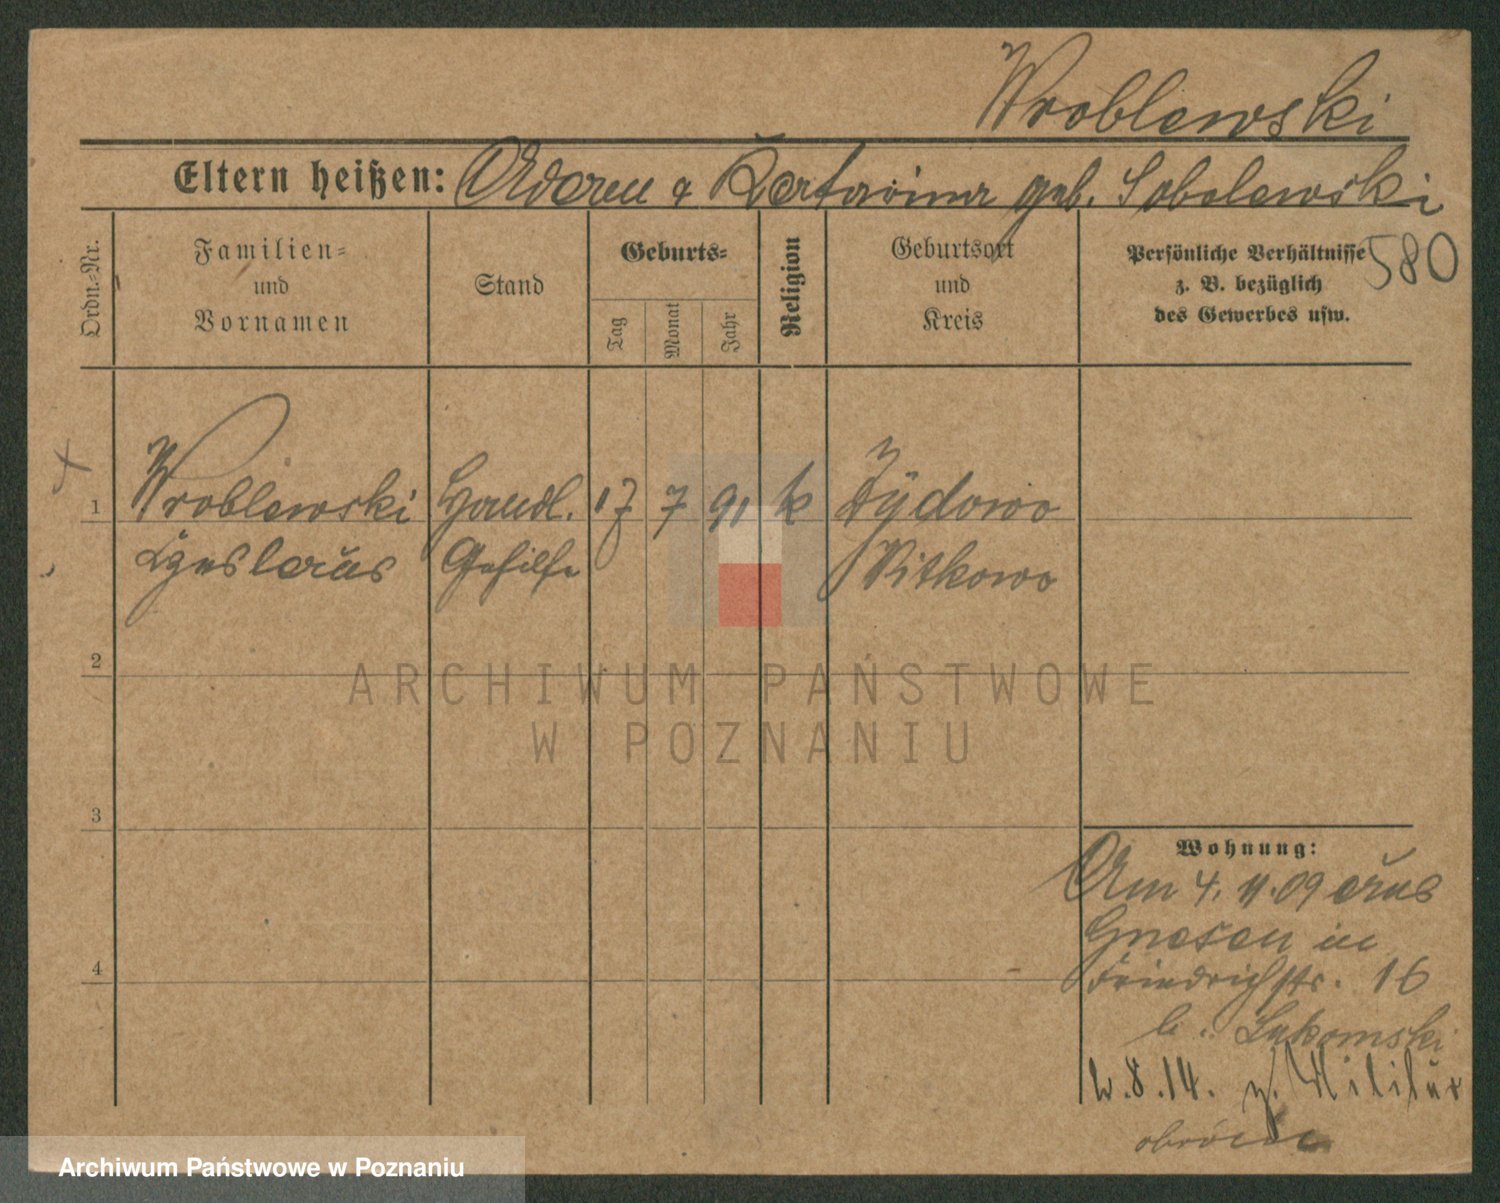 Wroblewski
Eltern heißen: Adam & Katarina geb. Sobelewski
580
Ordn.-Nr.
Familien- und Vornamen
Stand
Geburts-
Tag
Monat
Jahr
Religion
Geburtsort und Kreis
Persönliche Verhältnisse
z. B. bezüglich
des Gewerbes usw.
1 Wroblewski Handl. 17 7 91 k Żydowo
Gehilfe Witkowo
2
3
4
Wohnung:
Am 4. 11. 09 aus
Gnesen in
Friedrichstr. 16
b. Lukomski
8.14. z. Militär
ARCHIWUM PAŃSTWOWE
W POZNANIU
Archiwum Państwowe w Poznaniu